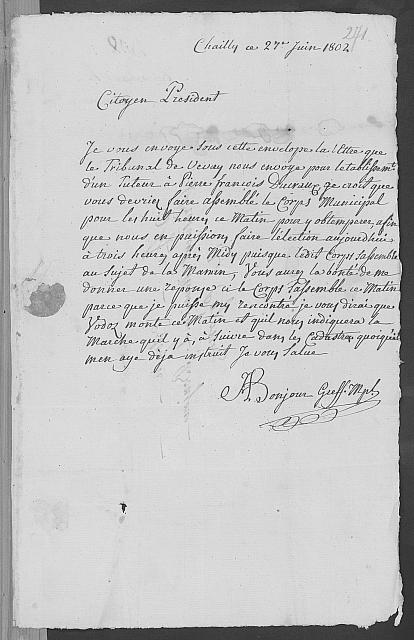 241
Chailly ce 27e Juin 1802
Citoyen President
Je vous envoye sous cette envelope la lettre que
le Tribunal de Vevay nous envoye pour letablissemt
d'un Tuteur à Pierre françois Ducraux je crois que
vous devriez faire assemblé le Corps Municipal
pour les huit heures ce Matin pour y obtemperer, afin
que nous en puissions faire lélection aujourdhuy
à trois heures après Midy puisque ledit Corps sassemble
au sujet de la Mamin, Vous aures la bonté de me
donner une reponse si le Corps sassemble ce Matin
parce que je puisse my rencontré je vous dirai que
Vodoz monte ce Matin et quil nous indiquera la
Marche quil y à, à suivre dans les Cadastres quoiquil
men aye dèja instruit Je vous Salue
Bonjour Greff. Mpl